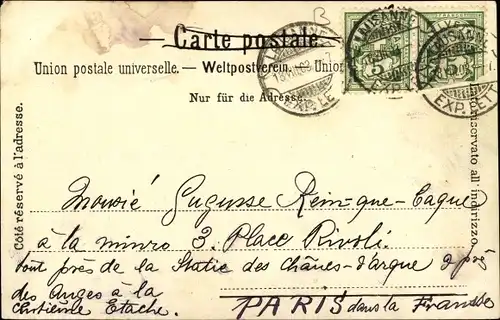 Carte postale.
Union postale universelle. — Weltpostverein. — Union
Nur für die Adresse.
Côté réservé à l'adresse.
riservato all' indirizzo.
LAUSANNE
EXP. LET
LAUSANNE
EXP. LE
FRANCO
5
5
Mousié Gugusse Rein-que-Caque
à la minro 3. Place Rivoli.
tout près de la Statie des chânes-d'arque
des Anges à la
Etache.
PARIS dans la Fransse